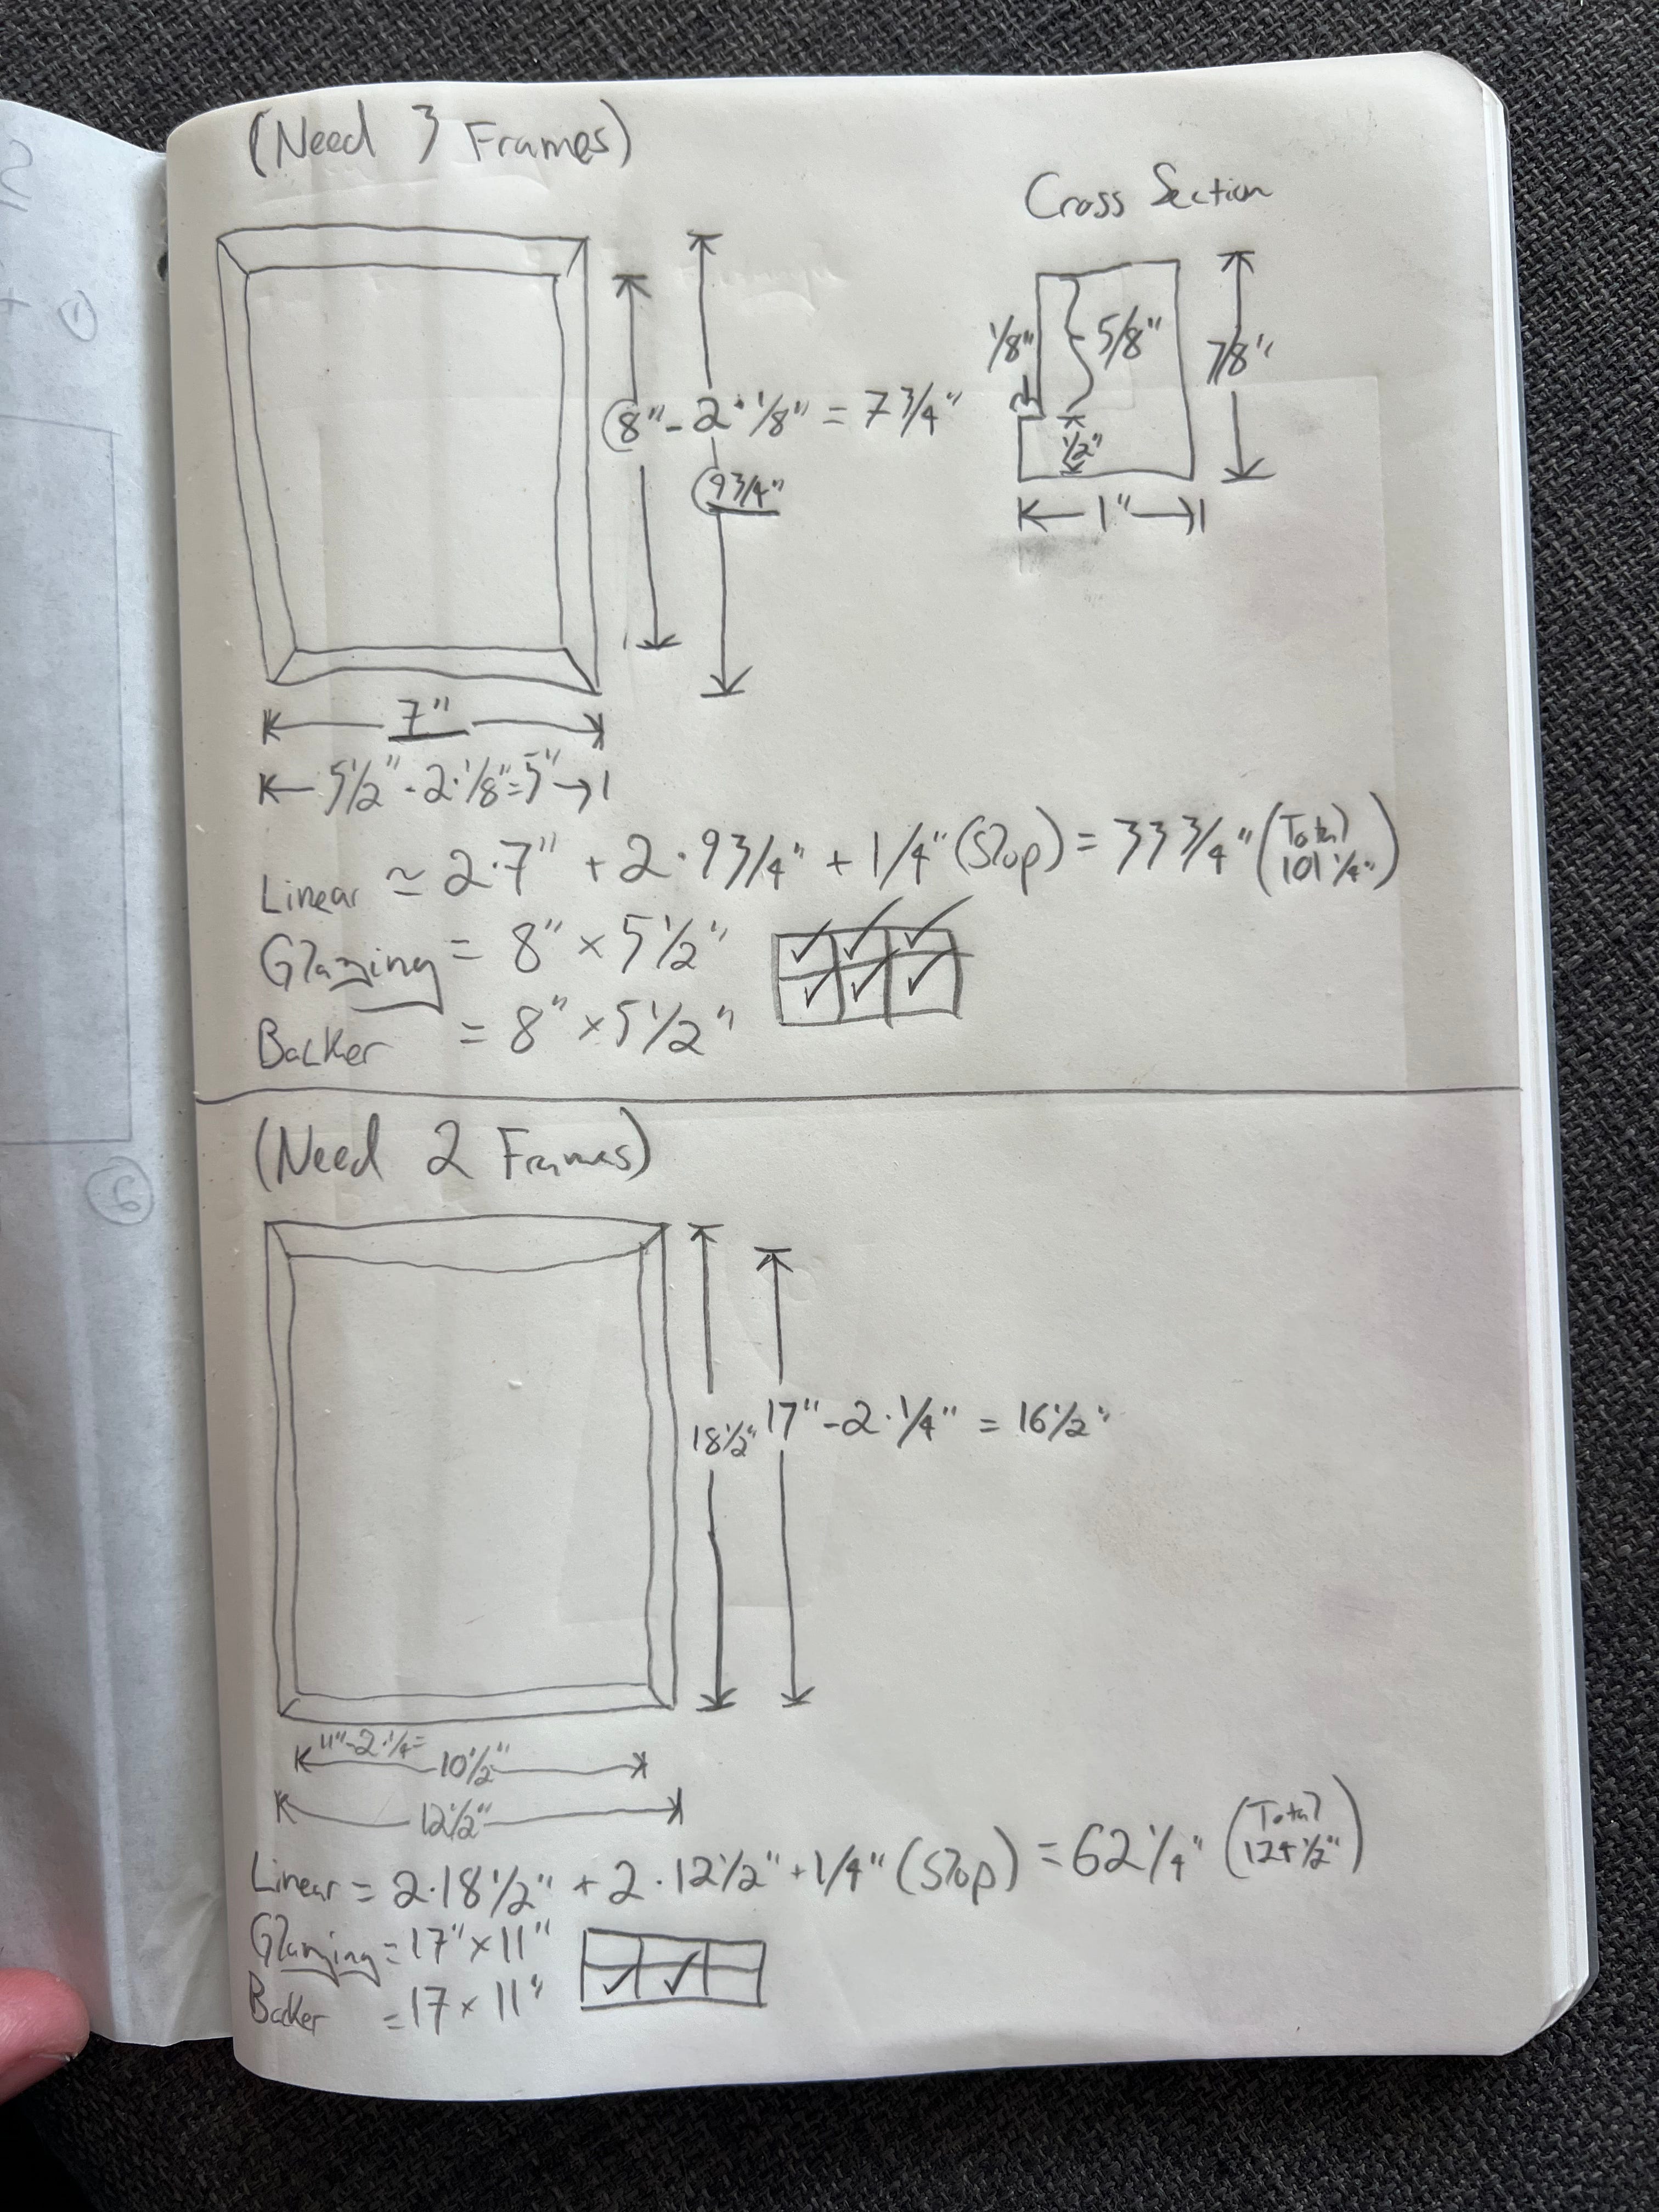 (Need 3 Frames)
Cross Section
1/8"
5/8"
7/8"
1/2"
1"
8" - 2 · 1/8" = 7 3/4"
9 3/4"
7"
5 1/2" - 2 · 1/8" = 5"
Linear ≃ 2 · 7" + 2 · 9 3/4" + 1/4" (Slop) = 33 3/4" (Total 101 1/4")
Glazing = 8" × 5 1/2"
Backer = 8" × 5 1/2"
(Need 2 Frames)
18 1/2"
17" - 2 · 1/4" = 16 1/2"
11" - 2 · 1/4 =
10 1/2"
12 1/2"
Linear = 2 · 18 1/2" + 2 · 12 1/2" + 1/4" (Slop) = 62 1/4" (Total 124 1/2")
Glazing = 17" × 11"
Backer = 17 × 11"